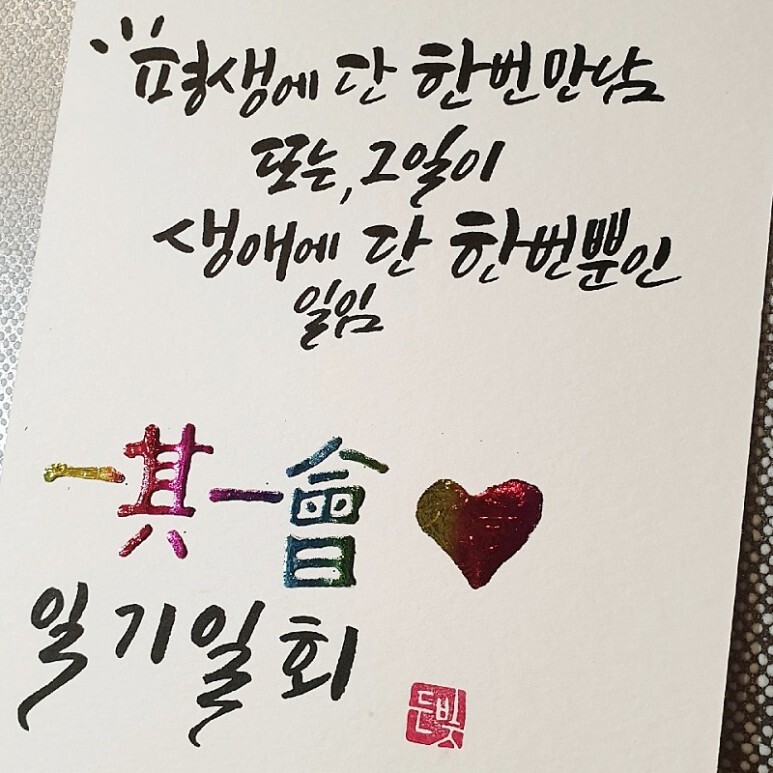 평생에 단 한번 만남
또는, 그 일이
생애에 단 한번뿐인
일임
一其一會
일기일회
든빛